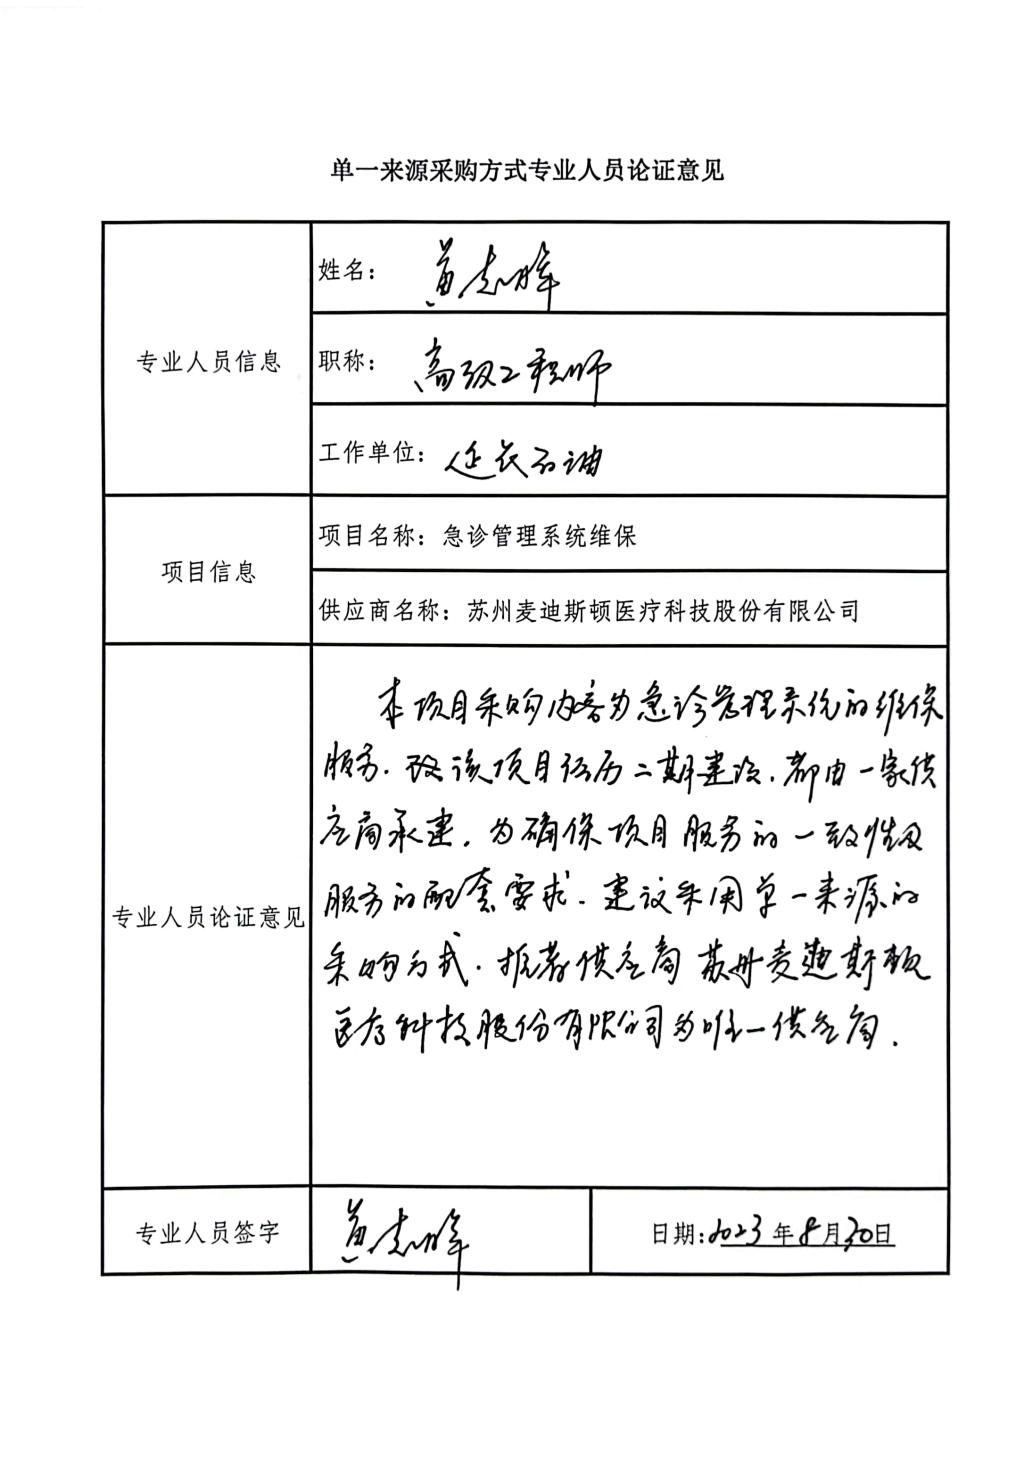 单一来源采购方式专业人员论证意见
专业人员信息
姓名：黄志晖
职称：高级工程师
工作单位：延长石油
项目信息
项目名称：急诊管理系统维保
供应商名称：苏州麦迪斯顿医疗科技股份有限公司
专业人员论证意见
本项目采购内容为急诊管理系统的维保
服务.现该项目经历二期建设.都由一家供
应商承建.为确保项目服务的一致性及
服务的配套要求.建议采用单一来源的
采购方式.推荐供应商苏州麦迪斯顿
医疗科技股份有限公司为唯一供应商.
专业人员签字
黄志晖
日期:2023年8月30日